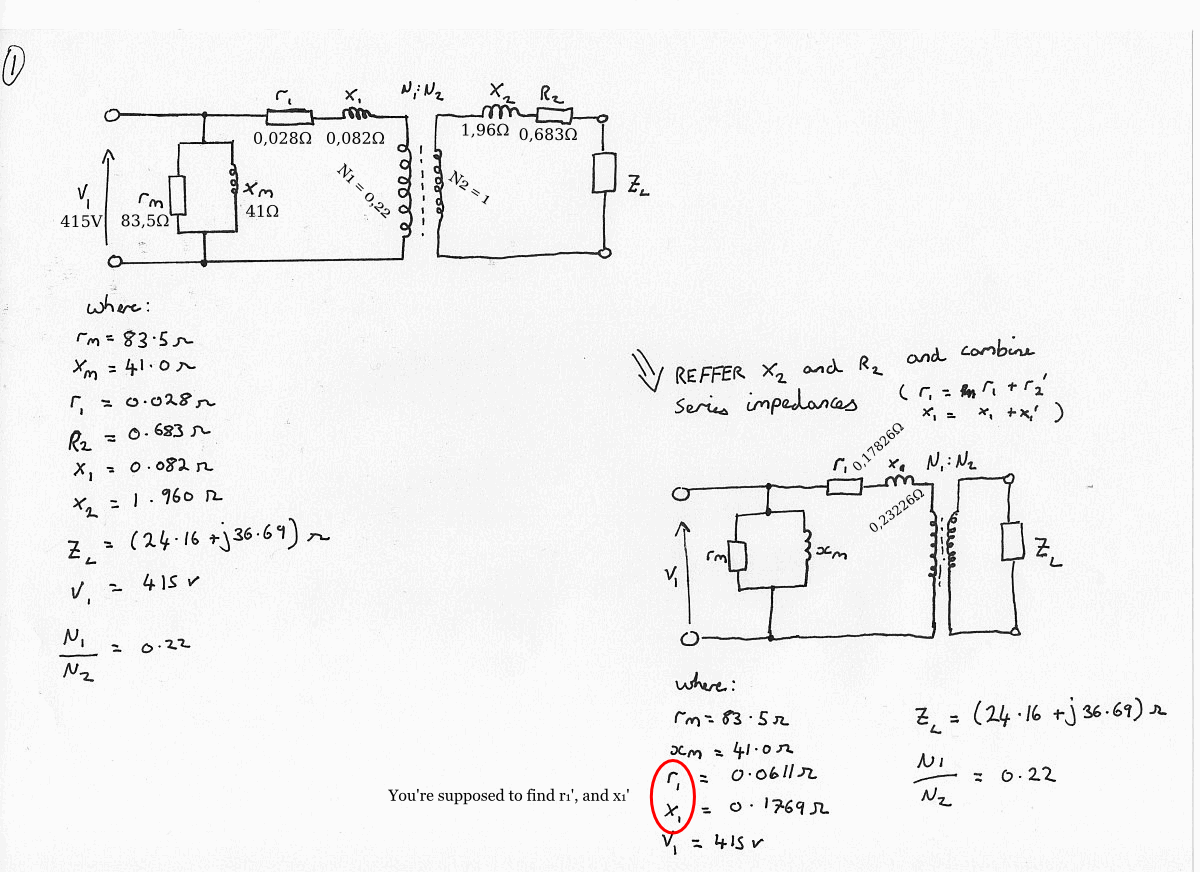 1
r₁ X₁ N₁:N₂ X₂ R₂
0,028Ω 0,082Ω 1,96Ω 0,683Ω
N1 = 0,22 N2 = 1
V₁ rm Xm ZL
415V 83,5Ω 41Ω
where:
rm = 83.5Ω
Xm = 41.0Ω
r₁ = 0.028Ω
R₂ = 0.683Ω
X₁ = 0.082Ω
X₂ = 1.960Ω
ZL = (24.16 + j36.69) Ω
V₁ = 415 V
N₁
N₂ = 0.22
REFFER X₂ and R₂ and combine
series impedances ( r₁ = r₁ + r₂'
x₁ = x₁ + x₁' )
r₁ 0,17826Ω x₁ N₁:N₂
0,23226Ω
V₁ rm xm ZL
where:
rm = 83.5Ω
xm = 41.0Ω
r₁ = 0.0611Ω
X₁ = 0.1769Ω
V₁ = 415 V
ZL = (24.16 + j36.69) Ω
N1
N2 = 0.22
You're supposed to find r₁', and x₁'